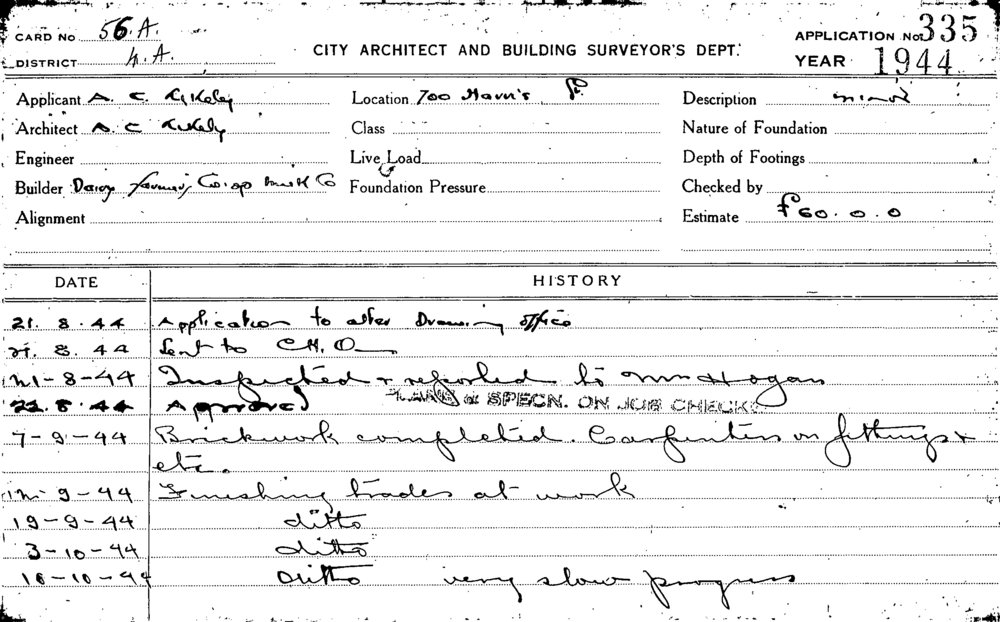 CARD No 56.A.
APPLICATION No. 335
DISTRICT 4.A.
CITY ARCHITECT AND BUILDING SURVEYOR'S DEPT.
YEAR 1944
Applicant A. C.
Location 700
Description minor
Architect A. C.
Class
Nature of Foundation
Engineer
Live Load
Depth of Footings
Builder Dairy farmers Co.op milk Co
Foundation Pressure
Checked by
Alignment
Estimate £60.0.0
DATE HISTORY
21.8.44 Application to alter Drawing office
21.8.44 Sent to C.H.O
21-8-44 Inspected & reported to Mr Hogan
22.8.44 Approved PLANS & SPECN. ON JOB CHECKED
7-9-44 Brickwork completed. Carpenters on fittings &
etc.
12-9-44 Finishing trades at work
19-9-44 ditto
3-10-44 ditto
16-10-44 ditto very slow progress